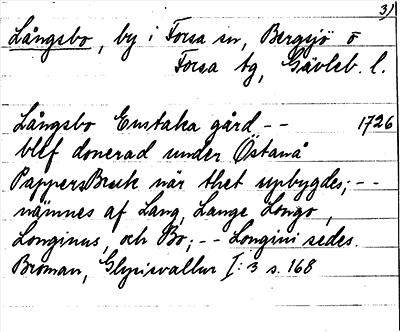 3)
Långsbo, by i Forsa sn, Bergsjö o
Forsa tg, Gävleb. l.
Långsbo Enstaka gård -- 1726
blef donerad under Östanå
PappersBruk när thet upbygdes; --
nämnes af Lang, Lange Longo,
Longinus, och Bo; -- Longini sedes.
Broman, Glysisvallur I: 3 s. 168